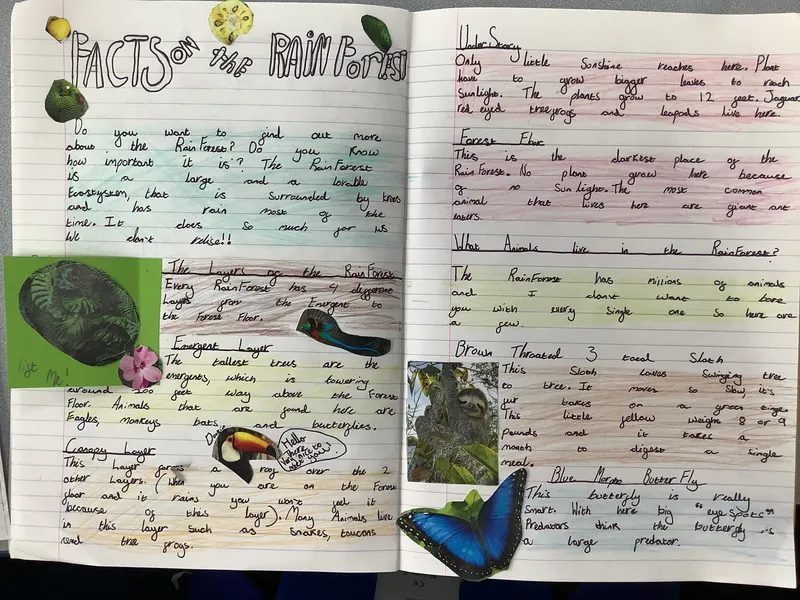 FACTS ON the RAIN Forest
Do you want to find out more
about the RainForest? Do you know
how important it is? The RainForest
is a large and a lovable
Ecosystem, that is surrounded by trees
and has rain most of the
time. It does so much for us
we don't relise!!
The Layers of the RainForest
Every RainForest has 4 different
Layers from the Emergent to
the Forest Floor.
lift Me!
Emergent Layer
The tallest trees are the
emergents, which is towering
around 200 feet way above the Forest
Floor. Animals that are found here are
Eagles, monkeys bats, and butterflies.
Hello
there
nice to
meet you!
Canopy Layer
This Layer forms a roof over the 2
other Layers. (When you are on the Forest
floor and it rains you won't feel it
because of this layer). Many Animals live
in this layer such as snakes, toucans
and tree frogs.
Under Story
Only little Sunshine reaches here. Plant
have to grow bigger leaves to reach
Sunlight. The plants grow to 12 feet. Jaguar
red eyed treefrogs and leopods live here.
Forest Floor
This is the darkest place of the
RainForest. No plant grow here because
of no Sun light. The most common
animal that lives here are giant ant
eaters.
What Animals live in the RainForest?
The RainForest has millions of animals
and I don't want to bore
you with every single one so here are
a few.
Brown Throated 3 toed Sloth
This Sloth loves Swinging tree
to tree. It moves so slow, it's
fur takes on a green tinge
This little fellow weighs 8 or 9
pounds and it takes a
month to digest a single
meal.
Blue Morpho ButterFly
This butterfly is really
smart. With here big "eye spots"
Predators think the butterfly is
a large predator.